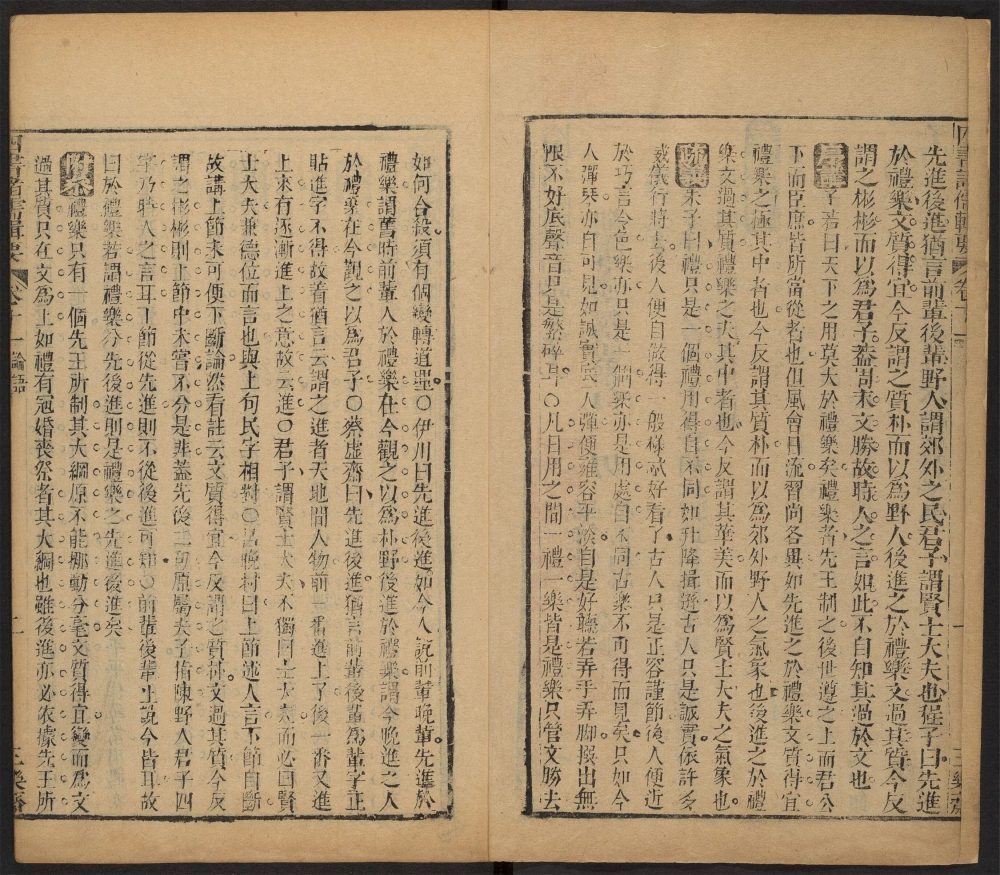 先進後進猶言前輩後輩野人謂郊外之民君子謂賢士大夫也程子曰先進
於禮樂文質得宜今反謂之質朴而以為野人後進之於禮樂文過其質今反
謂之彬彬而以為君子蓋周末文勝故時人之言如此不自知其過於文也
子若曰天下之用莫大於禮樂矣禮樂者先王制之後世遵之上而君公
下而臣庶皆所當從者也但風會日流習尚各異如先進之於禮樂文質得宜
禮樂之極其中者也今反謂其質朴而以為郊外野人之氣象也後進之於禮
樂文過其質禮樂之失其中者也今反謂其華美而以為賢士大夫之氣象也
朱子曰禮只是一個禮用得自不同如升降揖遜古人只是誠實依許多
威儀行將去後人便自做得一般樣忒好看了古人只是正容謹節後人便近
於巧言令色樂亦只是一個樂亦是用處自不同古樂不可得而見矣只如今
人彈琴亦自可見如誠實底人彈便雍容平淡自是好聽若弄手弄脚撰出無
限不好底聲音只是繁碎耳○凡日用之間一禮一樂皆是禮樂只管文勝去
如何合殺須有個變轉道理○伊川曰先進後進如今人說前輩晚輩先進於
禮樂謂舊時前輩人於禮樂在今觀之以為朴野後進於禮樂謂今晚進之人
於禮樂在今觀之以為君子○蔡虛齋曰先進後進猶言前輩後輩為輩字正
貼進字不得故著猶言云謂之進者天地間人物前一番進上了後一番又進
上來有逐漸進上之意故云進○君子謂賢士大夫不獨曰士大夫而必曰賢
士大夫兼德位而言也與上句民字相對○呂晚村曰上節述人言下節自斷
故講上節未可便下斷論然看註云文質得宜今反謂之質朴文過其質今反
謂之彬彬則上節中未嘗不分是非蓋先後二句原屬夫子指陳野人君子四
字乃時人之言耳下節從先進則不從後進可知○前輩後輩註說今皆耳故
曰於禮樂若謂禮樂分先後進則是禮樂之先進後進矣
禮樂只有一個先王所制其大綱原不能挪動分毫文質得宜變而為文
過其質只在文為上如禮有冠婚喪祭者其大綱也雖後進亦必依據先王所
四書諸儒輯要 卷十一 論語 二 三樂齋